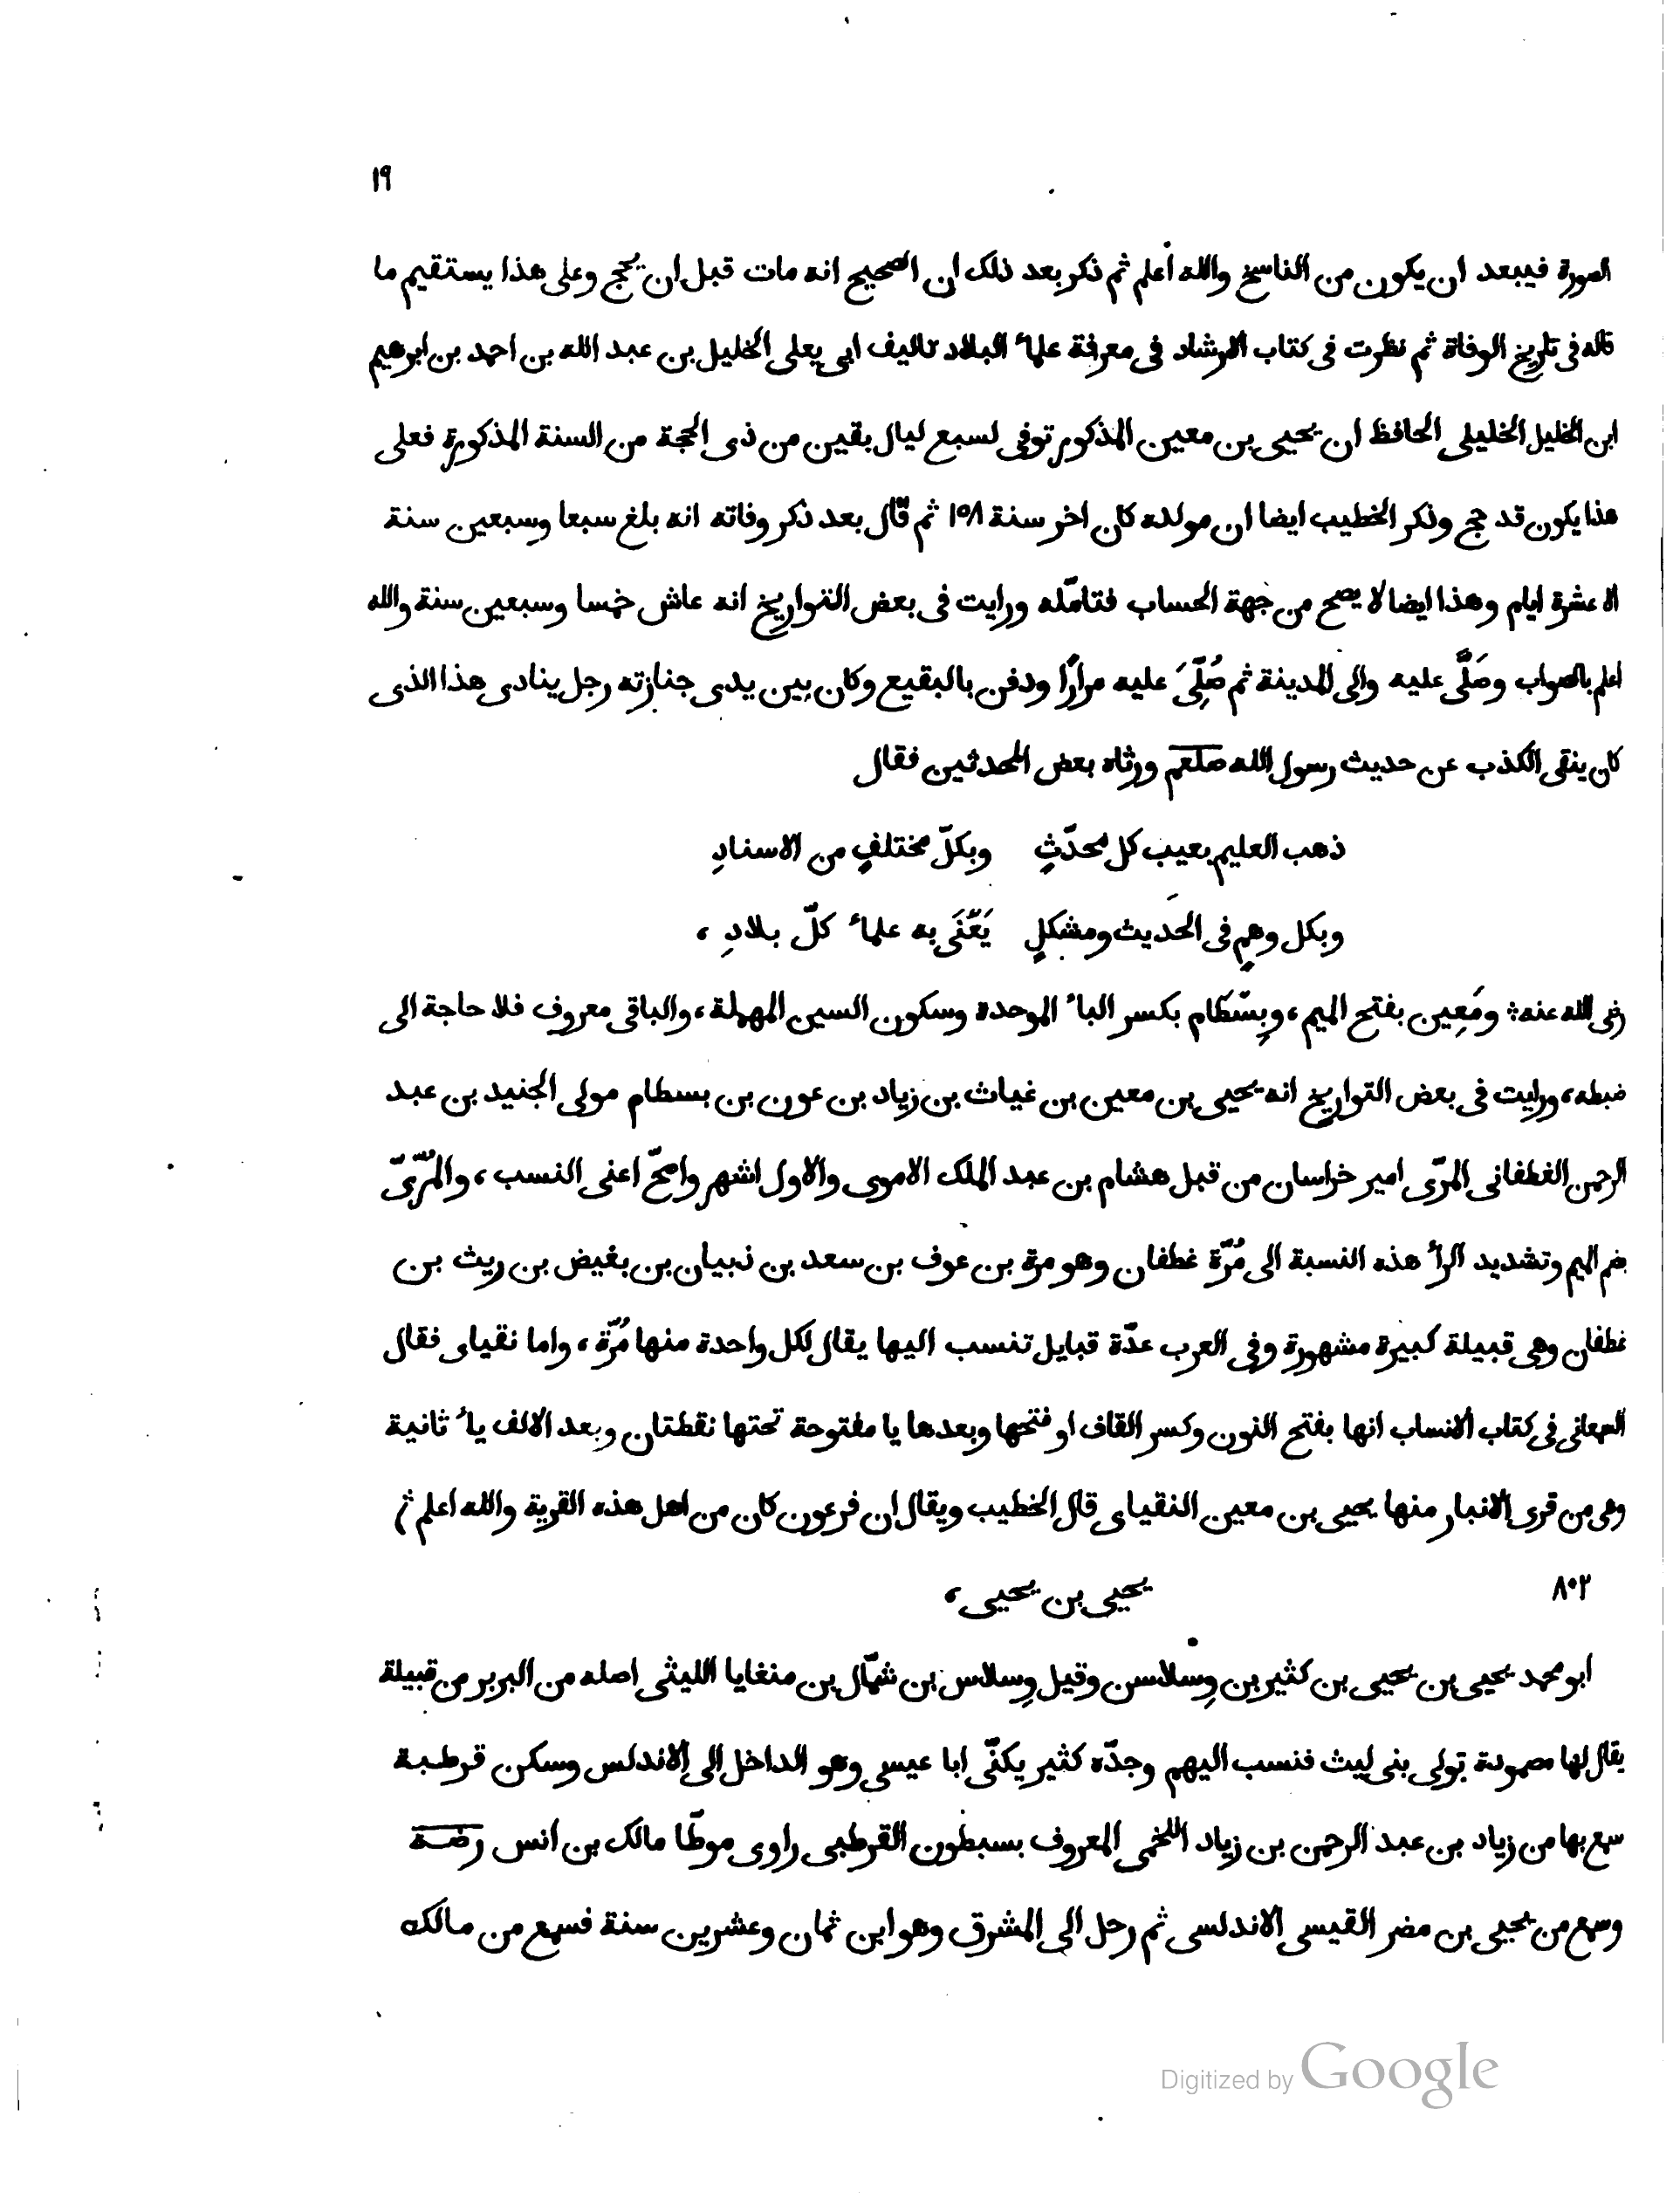 ١٩
الصورة فيبعد ان يكون من الناسخ والله اعلم ثم ذكر بعد ذلك ان الصحيح انه مات قبل ان يحج وعلى هذا يستقيم ما
قاله فى تاريخ الوفاة ثم نظرت فى كتاب الارشاد فى معرفة علمآ البلاد تاليف ابى يعلى الخليل بن عبد الله بن احمد بن ابرهيم
ابن الخليل الخليلى الحافظ ان يحيى بن معين المذكور توفى لسبع ليال بقين من ذى الحجة من السنة المذكورة فعلى
هذا يكون قد حج وذكر الخطيب ايضا ان مولده كان اخر سنة ١٥٨ ثم قال بعد ذكر وفاته انه بلغ سبعا وسبعين سنة
الا عشرة ايام وهذا ايضا لا يصح من جهة الحساب فتامّله ورايت فى بعض التواريخ انه عاش خمسا وسبعين سنة والله
اعلم بالصواب وصَلَّى عليه والى المدينة ثم صُلِّىَ عليه مرارًا ودفن بالبقيع وكان بين يدى جنازته رجل ينادى هذا الذى
كان ينقى الكذب عن حديث رسول الله صلعم ورثاه بعض المحدثين فقال
ذهب العليم بعيب كل محدّثٍ وبكلّ مختلفٍ من الاسنادِ
وبكل وهمٍ فى الحديث ومشكلٍ يَعْنَى به علمآ كلّ بلادِ ،
رضى الله عنه ؛ ومَعِين بفتح الميم ، وبِسْطَام بكسر البآ الموحدة وسكون السين المهملة ، والباقى معروف فلا حاجة الى
ضبطه ، ورايت فى بعض التواريخ انه يحيى بن معين بن غياث بن زياد بن عون بن بسطام مولى الجنيد بن عبد
الرحمن الغطفانى المرّى امير خراسان من قبل هشام بن عبد الملك الاموى والاول اشهر واصحّ اعنى النسب ، والمُرّىّ
بضم الميم وتشديد الرآ هذه النسبة الى مُرّة غطفان وهو مرة بن عوف بن سعد بن ذبيان بن بغيض بن ريث بن
غطفان وهى قبيلة كبيرة مشهورة وفى العرب عدّة قبايل تنسب اليها يقال لكل واحدة منها مُرّة ، واما نقياى فقال
السمعانى فى كتاب الانساب انها بفتح النون وكسر القاف او فتحها وبعدها يا مفتوحة تحتها نقطتان وبعد الالف يآ ثانية
وهى من قرى الانبار منها يحيى بن معين النقياى قال الخطيب ويقال ان فرعون كان من اهل هذه القرية والله اعلم ؛
٨٠٢ يحيى بن يحيى ،
ابو محمد يحيى بن يحيى بن كثير بن وِسْلاسن وقيل وِسلاس بن شمّال بن منغايا الليثى اصله من البربر من قبيلة
يقال لها مصمودة تولى بنى ليث فنسب اليهم وجدّه كثير يكنّى ابا عيسى وهو الداخل الى الاندلس وسكن قرطبة
سمع بها من زياد بن عبد الرحمن بن زياد اللخمى المعروف بسبطون القرطبى راوى موطّا مالك بن انس رضه
وسمع من يحيى بن مضر القيسى الاندلسى ثم رحل الى المشرق وهو ابن ثمان وعشرين سنة فسمع من مالك
Digitized by Google